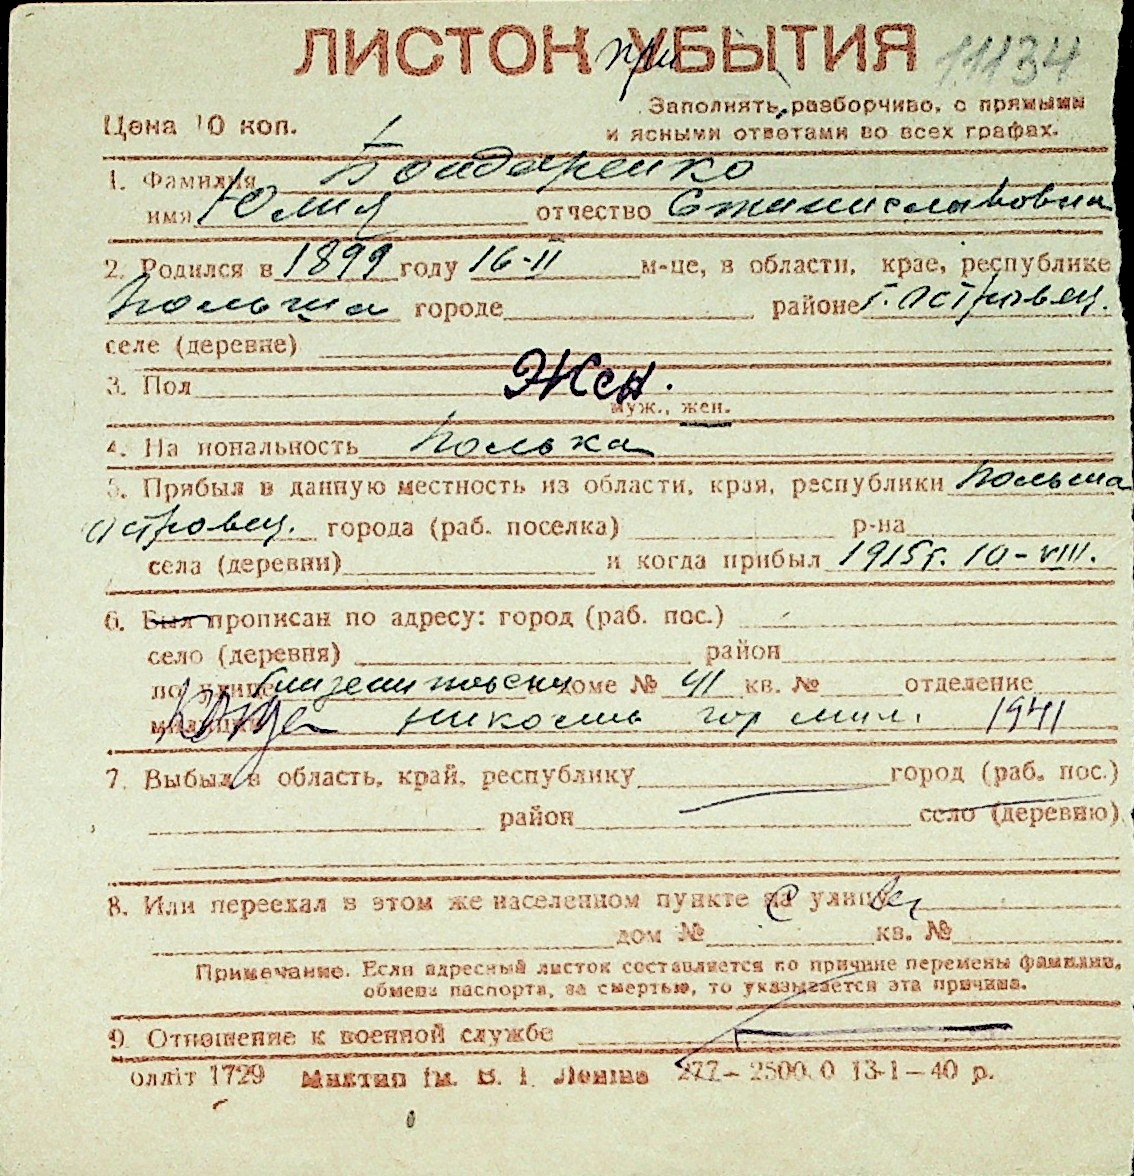 ЛИСТОК при УБЫТИЯ 11134
Цена 10 коп.
Заполнять разборчиво, с прямыми
и ясными ответами во всех графах.
1. Фамилия Бондаренко
имя Юлия отчество Станиславовна
2. Родился в 1899 году 16-II м-це, в области, крае, республике
Польша городе районе г. Островец.
селе (деревне)
3. Пол Жен.
муж., жен.
4. На иональность Полька
5. Прибыл в данную местность из области, края, республики Польша
Островец. города (раб. поселка) р-на
села (деревни) и когда прибыл 1915г. 10-VIII.
6. Был прописан по адресу: город (раб. пос.)
село (деревня) район
по улице доме № 41 кв. № отделение
милиции Николь гор мил. 1941
7. Выбыл в область, край, республику город (раб. пос.)
район село (деревню)
8. Или переехал в этом же населенном пункте на улицу
дом № кв. №
Примечание. Если адресный листок составляется по причине перемены фамилии,
обмена паспорта, за смертью, то указывается эта причина.
9. Отношение к военной службе
олліт 1729 Миктип ім. В. І. Леніна 277 — 2500.0 13-1-40 р.